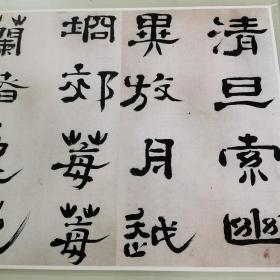 清旦索幽
異放月越
郊莓莓
蘭渚